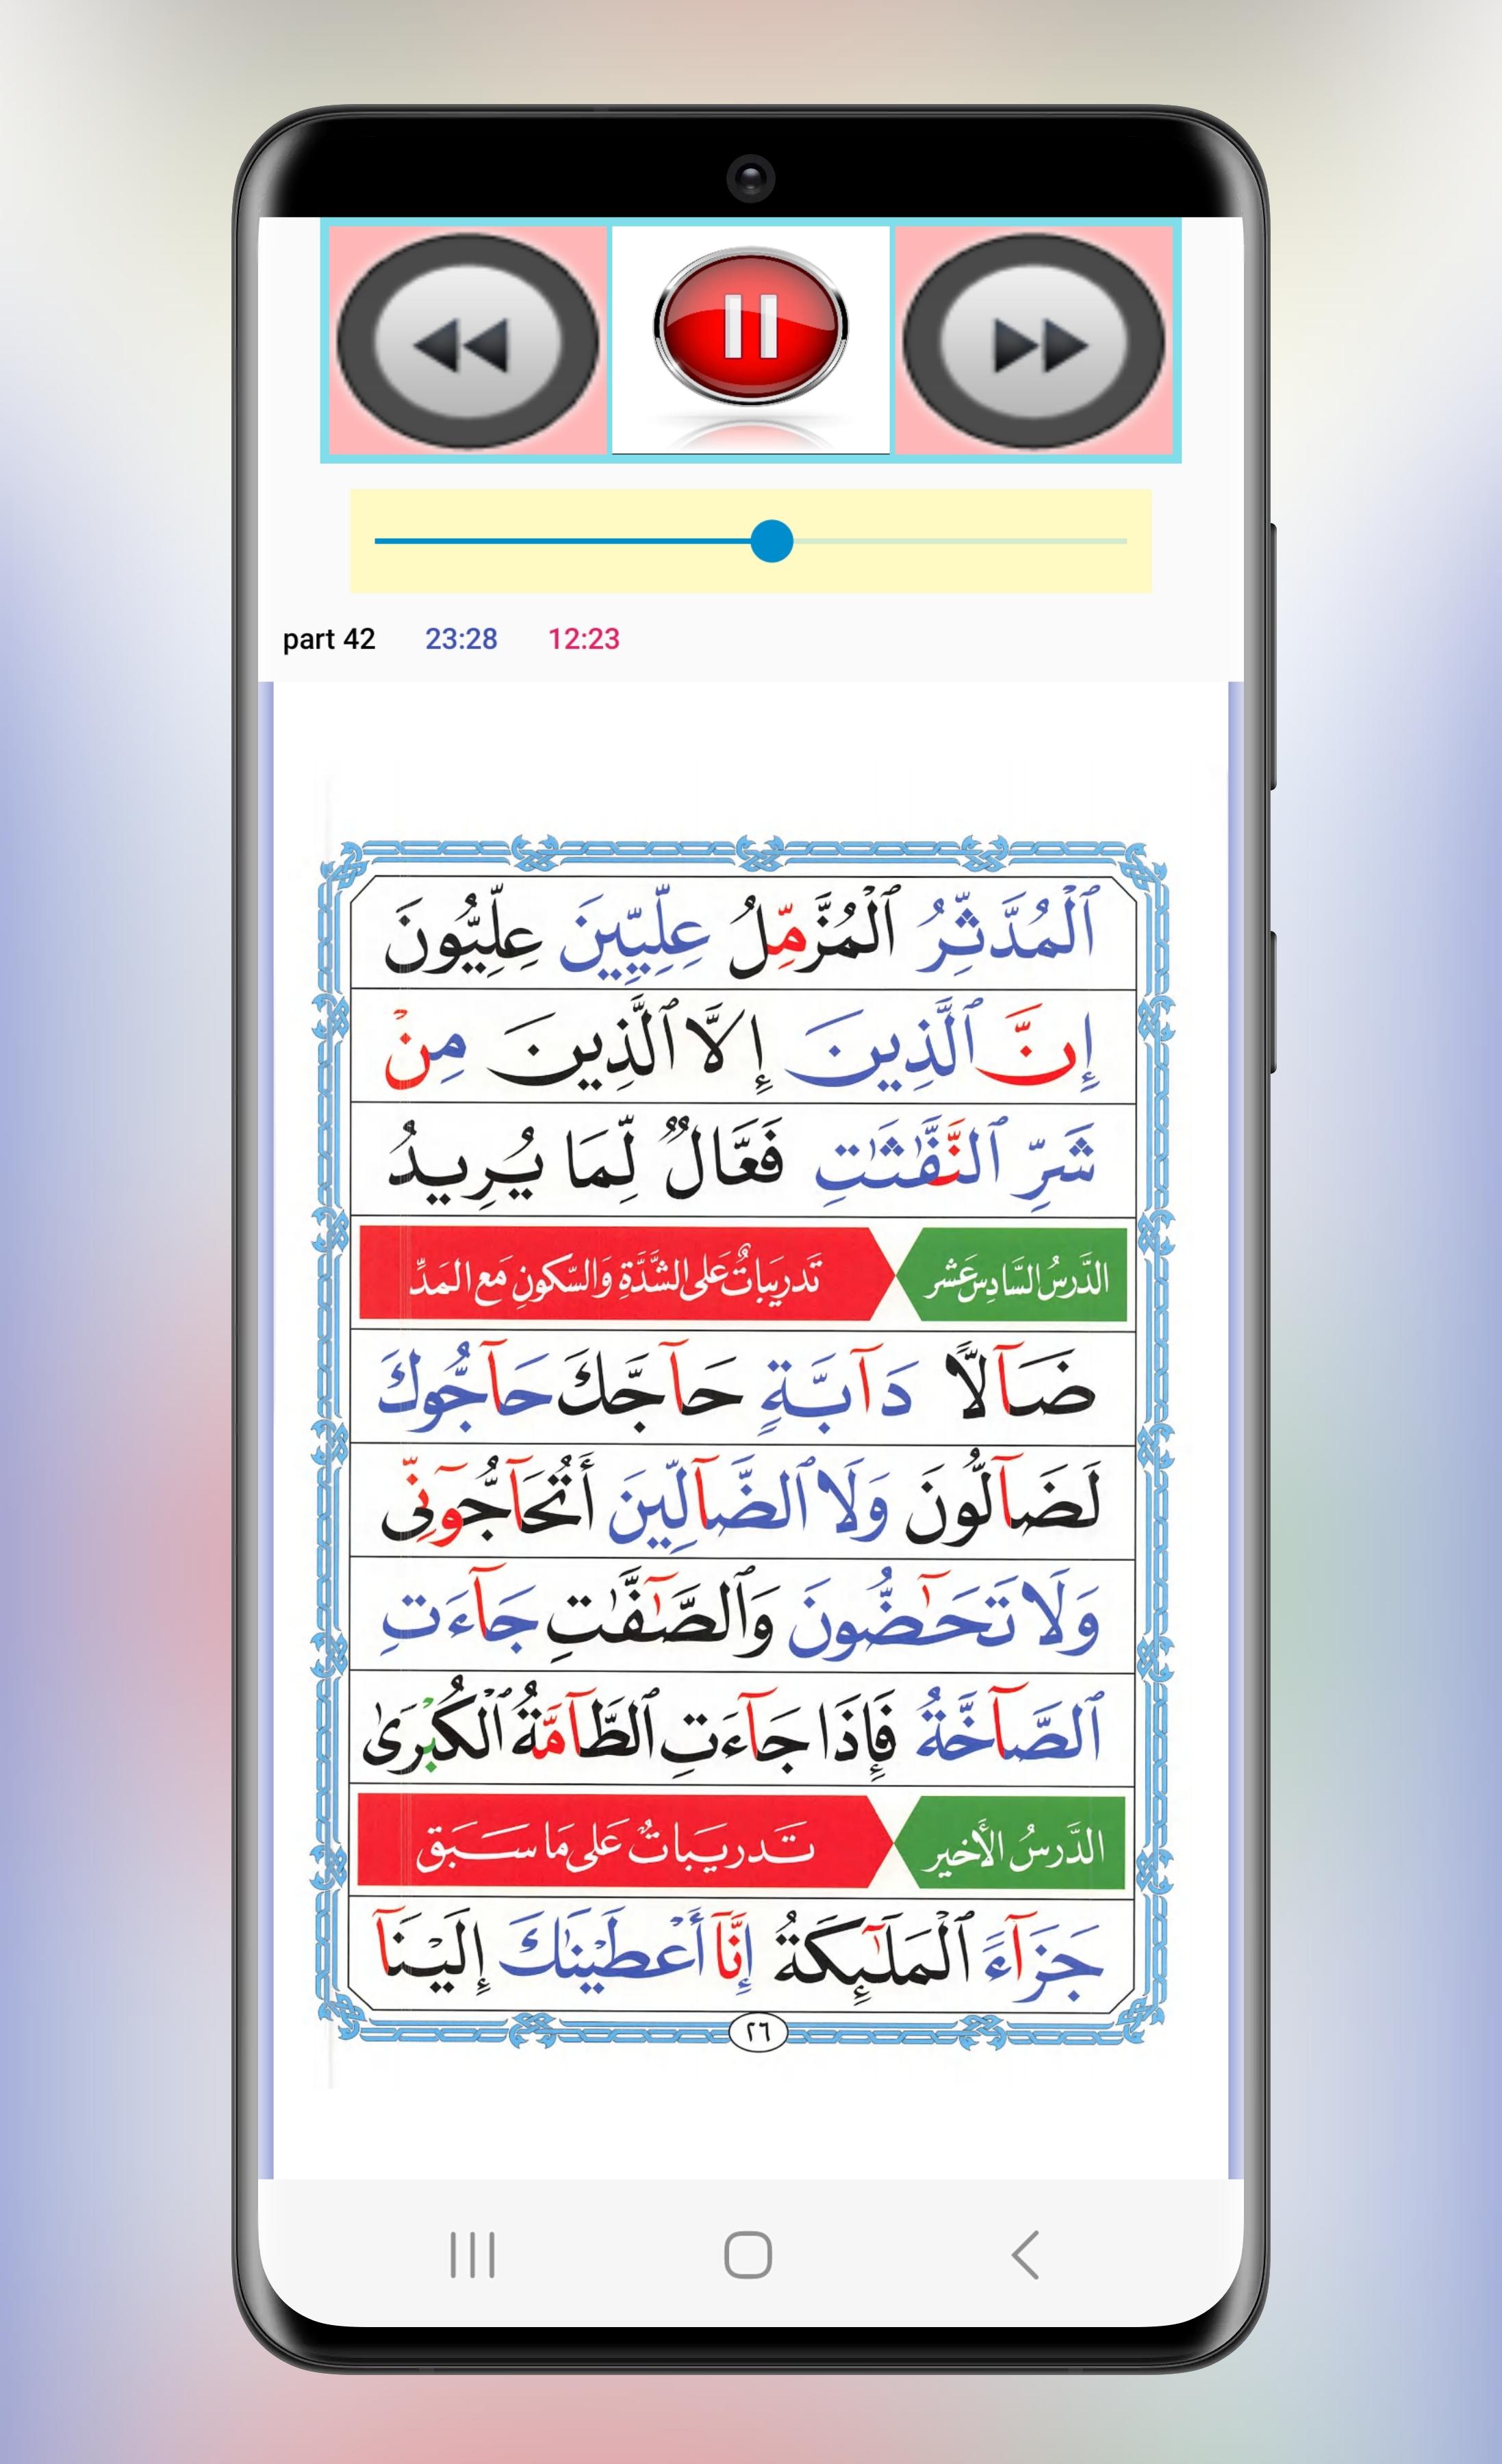 part 42 23:28 12:23
ٱلْمُدَّثِّرُ ٱلْمُزَّمِّلُ عِلِّيِّينَ عِلِّيُّونَ
إِنَّ ٱلَّذِينَ إِلَّا ٱلَّذِينَ مِنْ
شَرِّ ٱلنَّفَّٰثَٰتِ فَعَّالٌ لِّمَا يُرِيدُ
الدَّرسُ السَّادِس عَشر تَدريبَاتٌ عَلى الشَّدَّةِ وَالسّكونِ مَع المَدِّ
ضَآلًّا دَآبَّةٍ حَآجَّكَ حَآجُّوكَ
لَضَآلُّونَ وَلَا ٱلضَّآلِّينَ أَتُحَآجُّوٓنِّى
وَلَا تَحَٰٓضُّونَ وَٱلصَّٰٓفَّٰتِ جَآءَتِ
ٱلصَّآخَّةُ فَإِذَا جَآءَتِ ٱلطَّآمَّةُ ٱلْكُبْرَىٰ
الدَّرسُ الأَخير تَدريبَاتٌ عَلى مَا سَبَق
جَزَآءً ٱلْمَلَٰٓئِكَةُ إِنَّآ أَعْطَيْنَٰكَ إِلَيْنَآ
٢٦